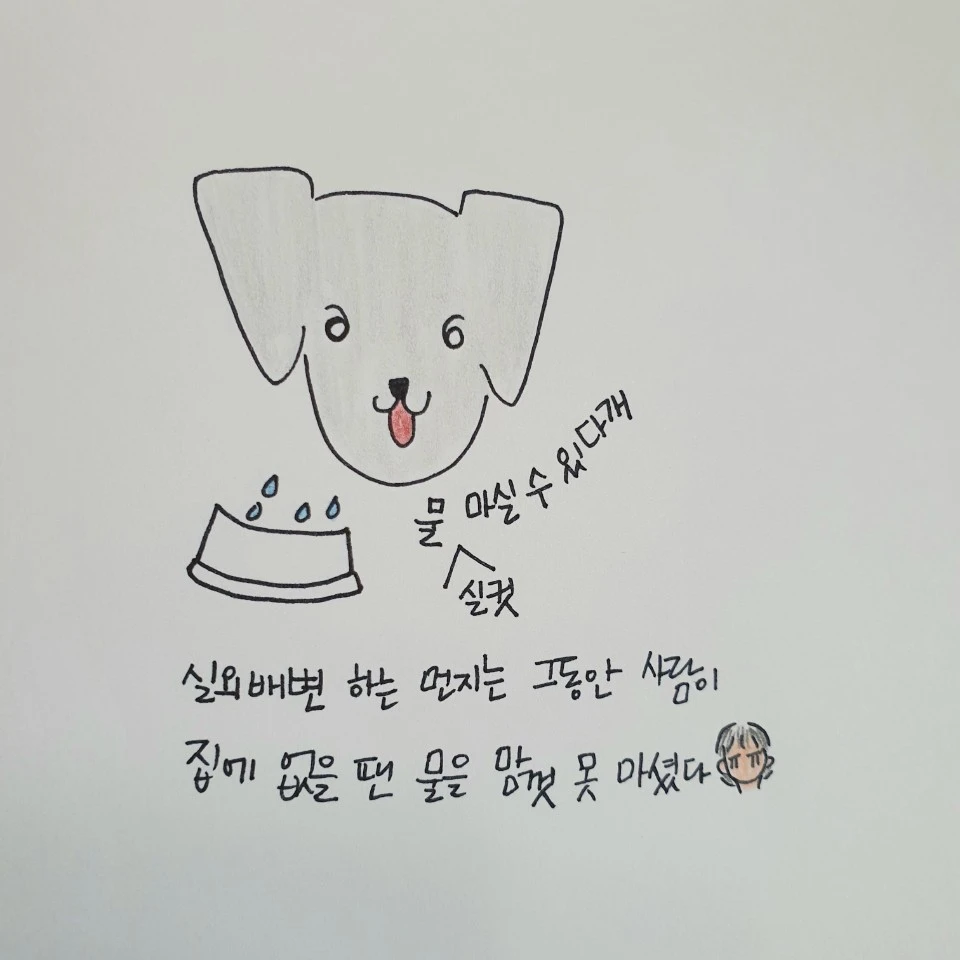 물 마실 수 있다개
실컷
실외배변 하는 먼지는 그동안 사람이
집에 없을 땐 물을 맘껏 못 마셨다